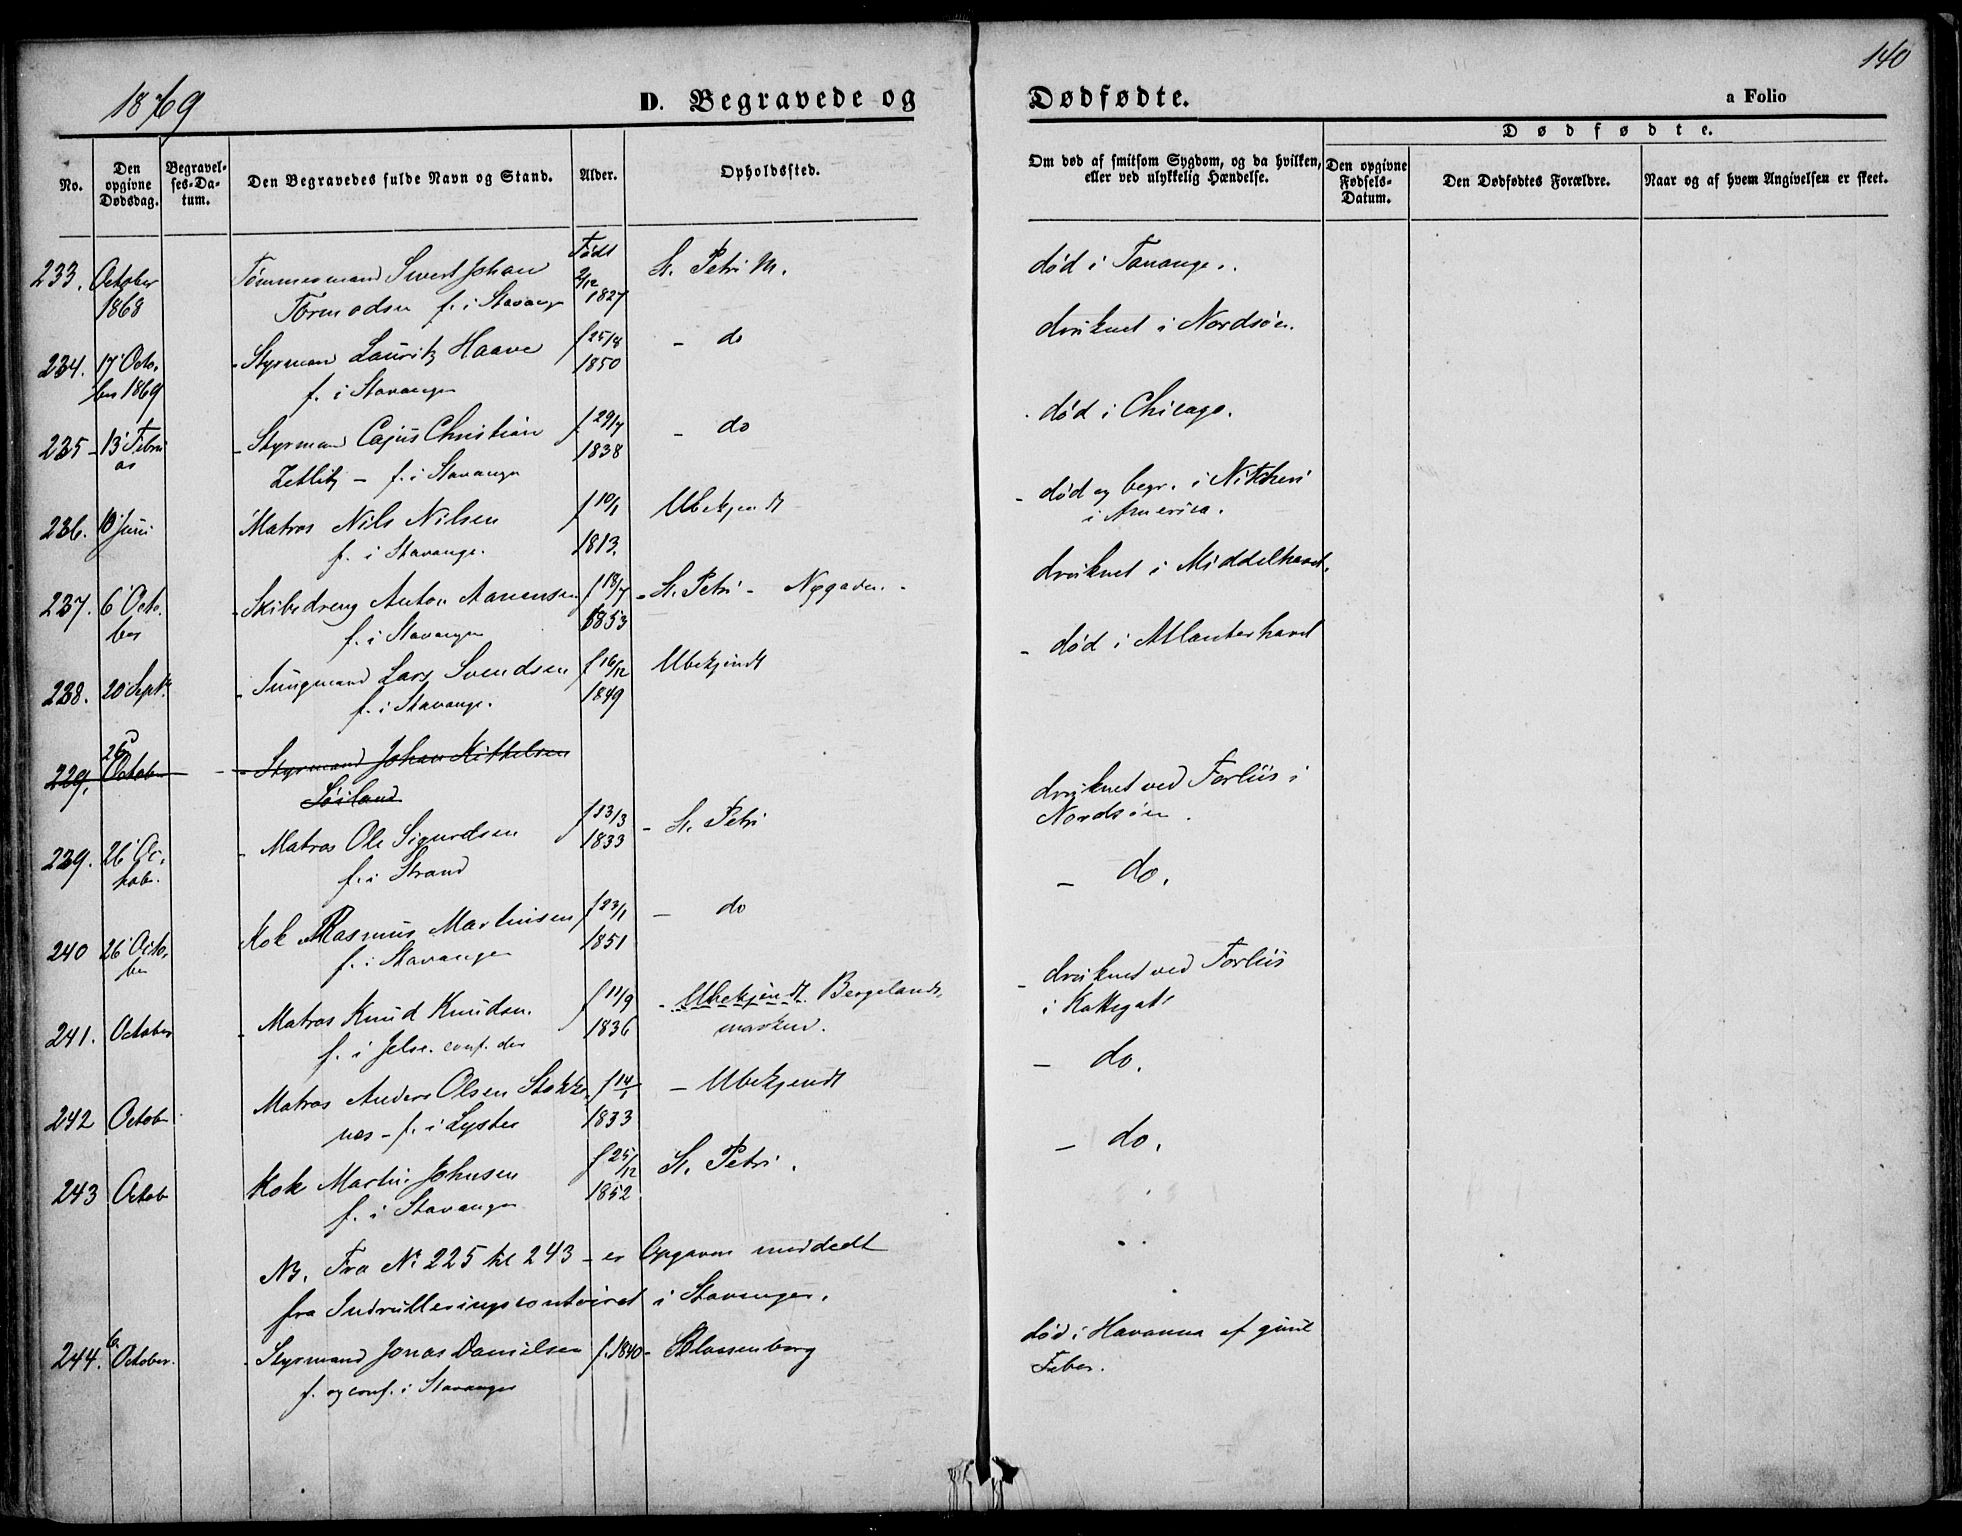 1869
D. Begravede og
Dødfødte.
a Folio
140
No.
Den opgivne Dødsdag.
Begravelses-Datum.
Den Begravedes fulde Navn og Stand.
Alder.
Opholdssted.
Om død af smitsom Sygdom, og da hvilken,
eller ved ulykkelig Hændelse.
Dødfødte.
Den opgivne Fødsels-Datum.
Den Dødfødtes Forældre.
Naar og af hvem Angivelsen er skeet.
233. October Tømmermand Sivert Johan Født 2/12 St. Petri M. død i Tananger.
1868 Tormodsen f. i Stavanger 1827
234. 17 Octo- Styrman Lauritz Haave f 25/8 - do druknet i Nordsøen.
ber 1869 f. i Stavanger 1850
235 - 13 Febru Styrmand Cajus Christian f. 29/7 - do død i Chicago.
ar Zetlitz - f. i Stavanger 1838
236. 10 Juni Matros Nils Nilsen f 10/1 Ubekjendt - død og begr. i
f. i Stavanger. 1813. i America.
237. 6 Octo- Skibsdreng Anton Aanensen f 18/7 St. Petri - Nygaden. druknet i Middelhavet.
ber f. i Stavanger 1853
238. 20 Septb. Jungmand Lars Svendsen f 16/12 Ubekjendt - død i Atlanterhavet
f. i Stavanger. 1849
229. 26 October - Styrmand Johan Kittelsen
Soiland
239. 26 Oc- Matros Ole Sigurdsen f 13/3 - St. Petri druknet ved Forliis i
tob. f. i Strand 1833 Nordsøen.
240 26 Octo- Kok Rasmus Martinsen f 23/1 - do - do.
ber f. i Stavanger 1851
241. October - Matros Knud Knudsen. f 11/9 - Ubekjendt. Bergelands- - druknet ved Forliis
f. i Jelse. conf. der 1836 marken. i Kattegat
242 Octob Matros Anders Olsen Stokke- f 14/1 - Ubekjendt - do.
næs - f. i Lyster 1833
243 Octob Kok Martin Johnsen f 25/12 St. Petri. - do.
f. i Stavanger 1852
NB. Fra No 225 til 243 - er Opgaven meddelt
fra Indrulleringscontoiret i Stavanger.
244. 6 October. Styrmand Jonas Danielsen f. 1840 - Blaasenborg død i Havanna af guul
f. og conf. i Stavanger Feber.